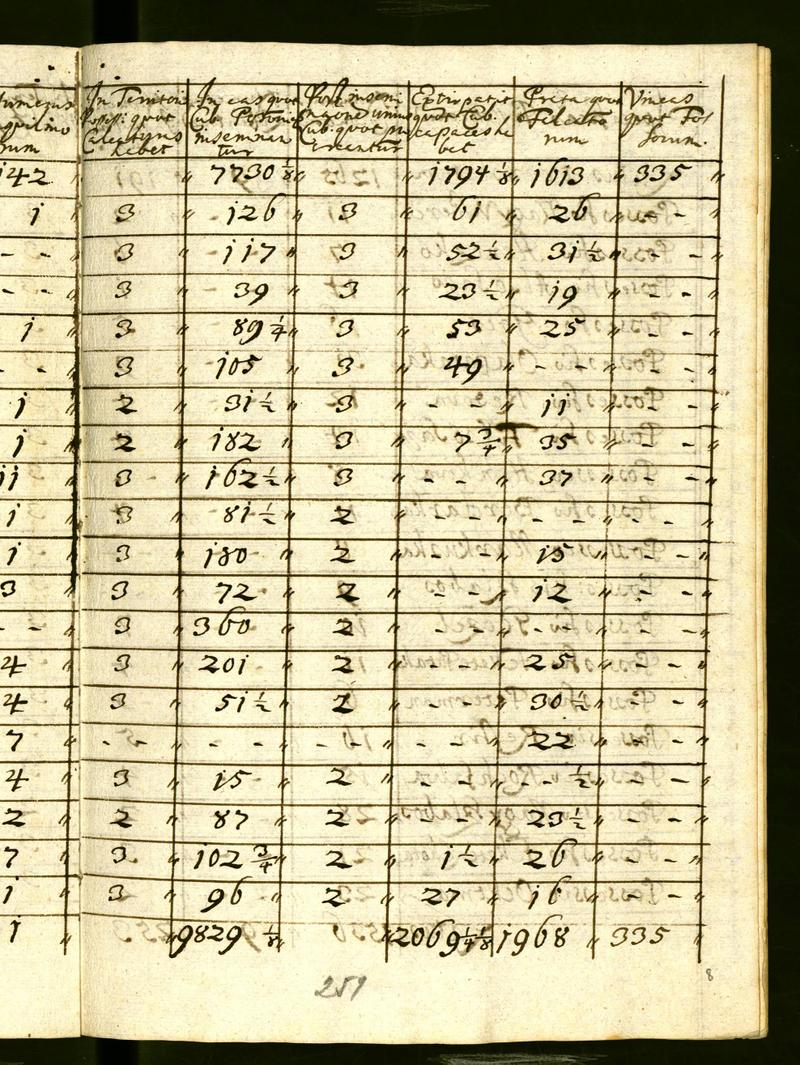 In Territorio In eas quot Post insemi Extirpatit Prata quot Vineas
quot Cub. Poson: quot Cub. Falcato quot Fos
Calcatyrus inseminan Cub. quot pro rum sorum
hebet tur ercentur bet
rum
142 " 7730 1/8 " " 1794 1/8 " 1613 " 335 "
1 " 3 " 126 " 3 " 61 " 26 " - - "
- - " 3 " 117 " 3 " 52 1/2 " 31 1/2 " - - "
- - " 3 " 39 " 3 " 23 1/2 " 19 " - - "
1 " 3 " 89 1/4 " 3 " 53 " 25 " - - "
- - " 3 " 105 " 3 " 49 " - - " - - "
1 " 2 " 31 1/2 " 3 " - - " 11 " - - "
1 " 2 " 182 " 3 " 7 3/4 " 35 " - - "
11 " 3 " 162 1/2 " 3 " - - " 37 " - - "
1 " 3 " 81 1/2 " 2 " - - " - - " - - "
1 " 3 " 180 " 2 " - - " 15 " - - "
3 " 3 " 72 " 2 " - - " 12 " - - "
- - " 3 " 360 " 2 " - - " - - " - - "
4 " 3 " 201 " 2 " - - " 25 " - - "
4 " 3 " 51 1/2 " 2 " - - " 30 1/2 " - - "
7 " - - " - - " - - " - - " 22 " - - "
4 " 3 " 15 " 2 " - - " - - 1/2 " - - "
2 " 2 " 87 " 2 " - - " 23 1/2 " - - "
7 " 3 " 102 3/4 " 2 " 1 1/2 " 26 " - - "
1 " 3 " 96 " 2 " 27 " 16 " - - "
1 " " 9829 1/8 " " 2069 1/4 1/8 " 1968 " 335 "
251
8